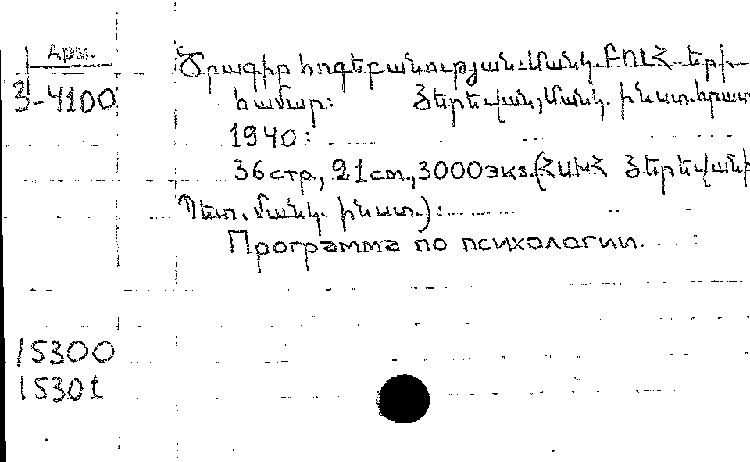 Арм.
3-4100
Ծրագիր հոգեբանության. Մանկ. ԲՈՒՀ-երի
համար: Երևան, Մանկ. ինստ. հրատ
1940:
36стр., 21см., 3000экз. (ՀՍԽՀ Երևանի
Պետ. մանկ. ինստ.):
Программа по психологии.
15300
15301